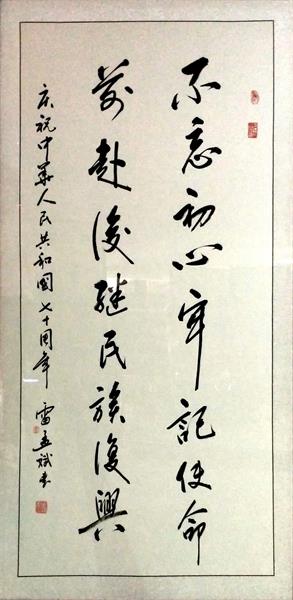 不忘初心牢記使命
前赴後继民族復興
庆祝中華人民共和國七十周年 雷孟斌书